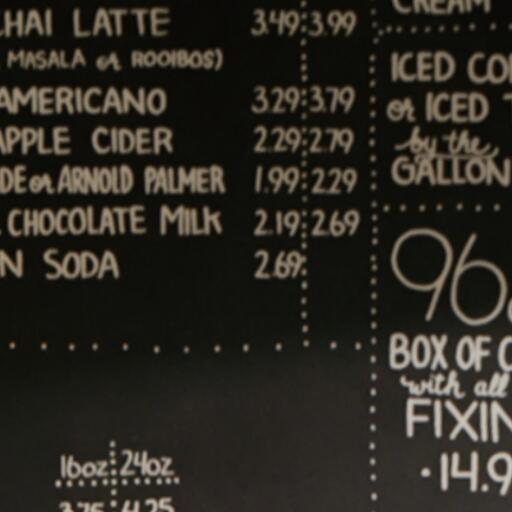 CHAI LATTE 3.49 3.99
MASALA or ROOIBOS)
AMERICANO 3.29 3.79
APPLE CIDER 2.29 2.79
DE or ARNOLD PALMER 1.99 2.29
CHOCOLATE MILK 2.19 2.69
N SODA 2.69
16oz 24oz
3.75 4.25
CREAM
ICED CO
or ICED
by the
GALLON
96
BOX OF C
with all
FIXIN
14.9